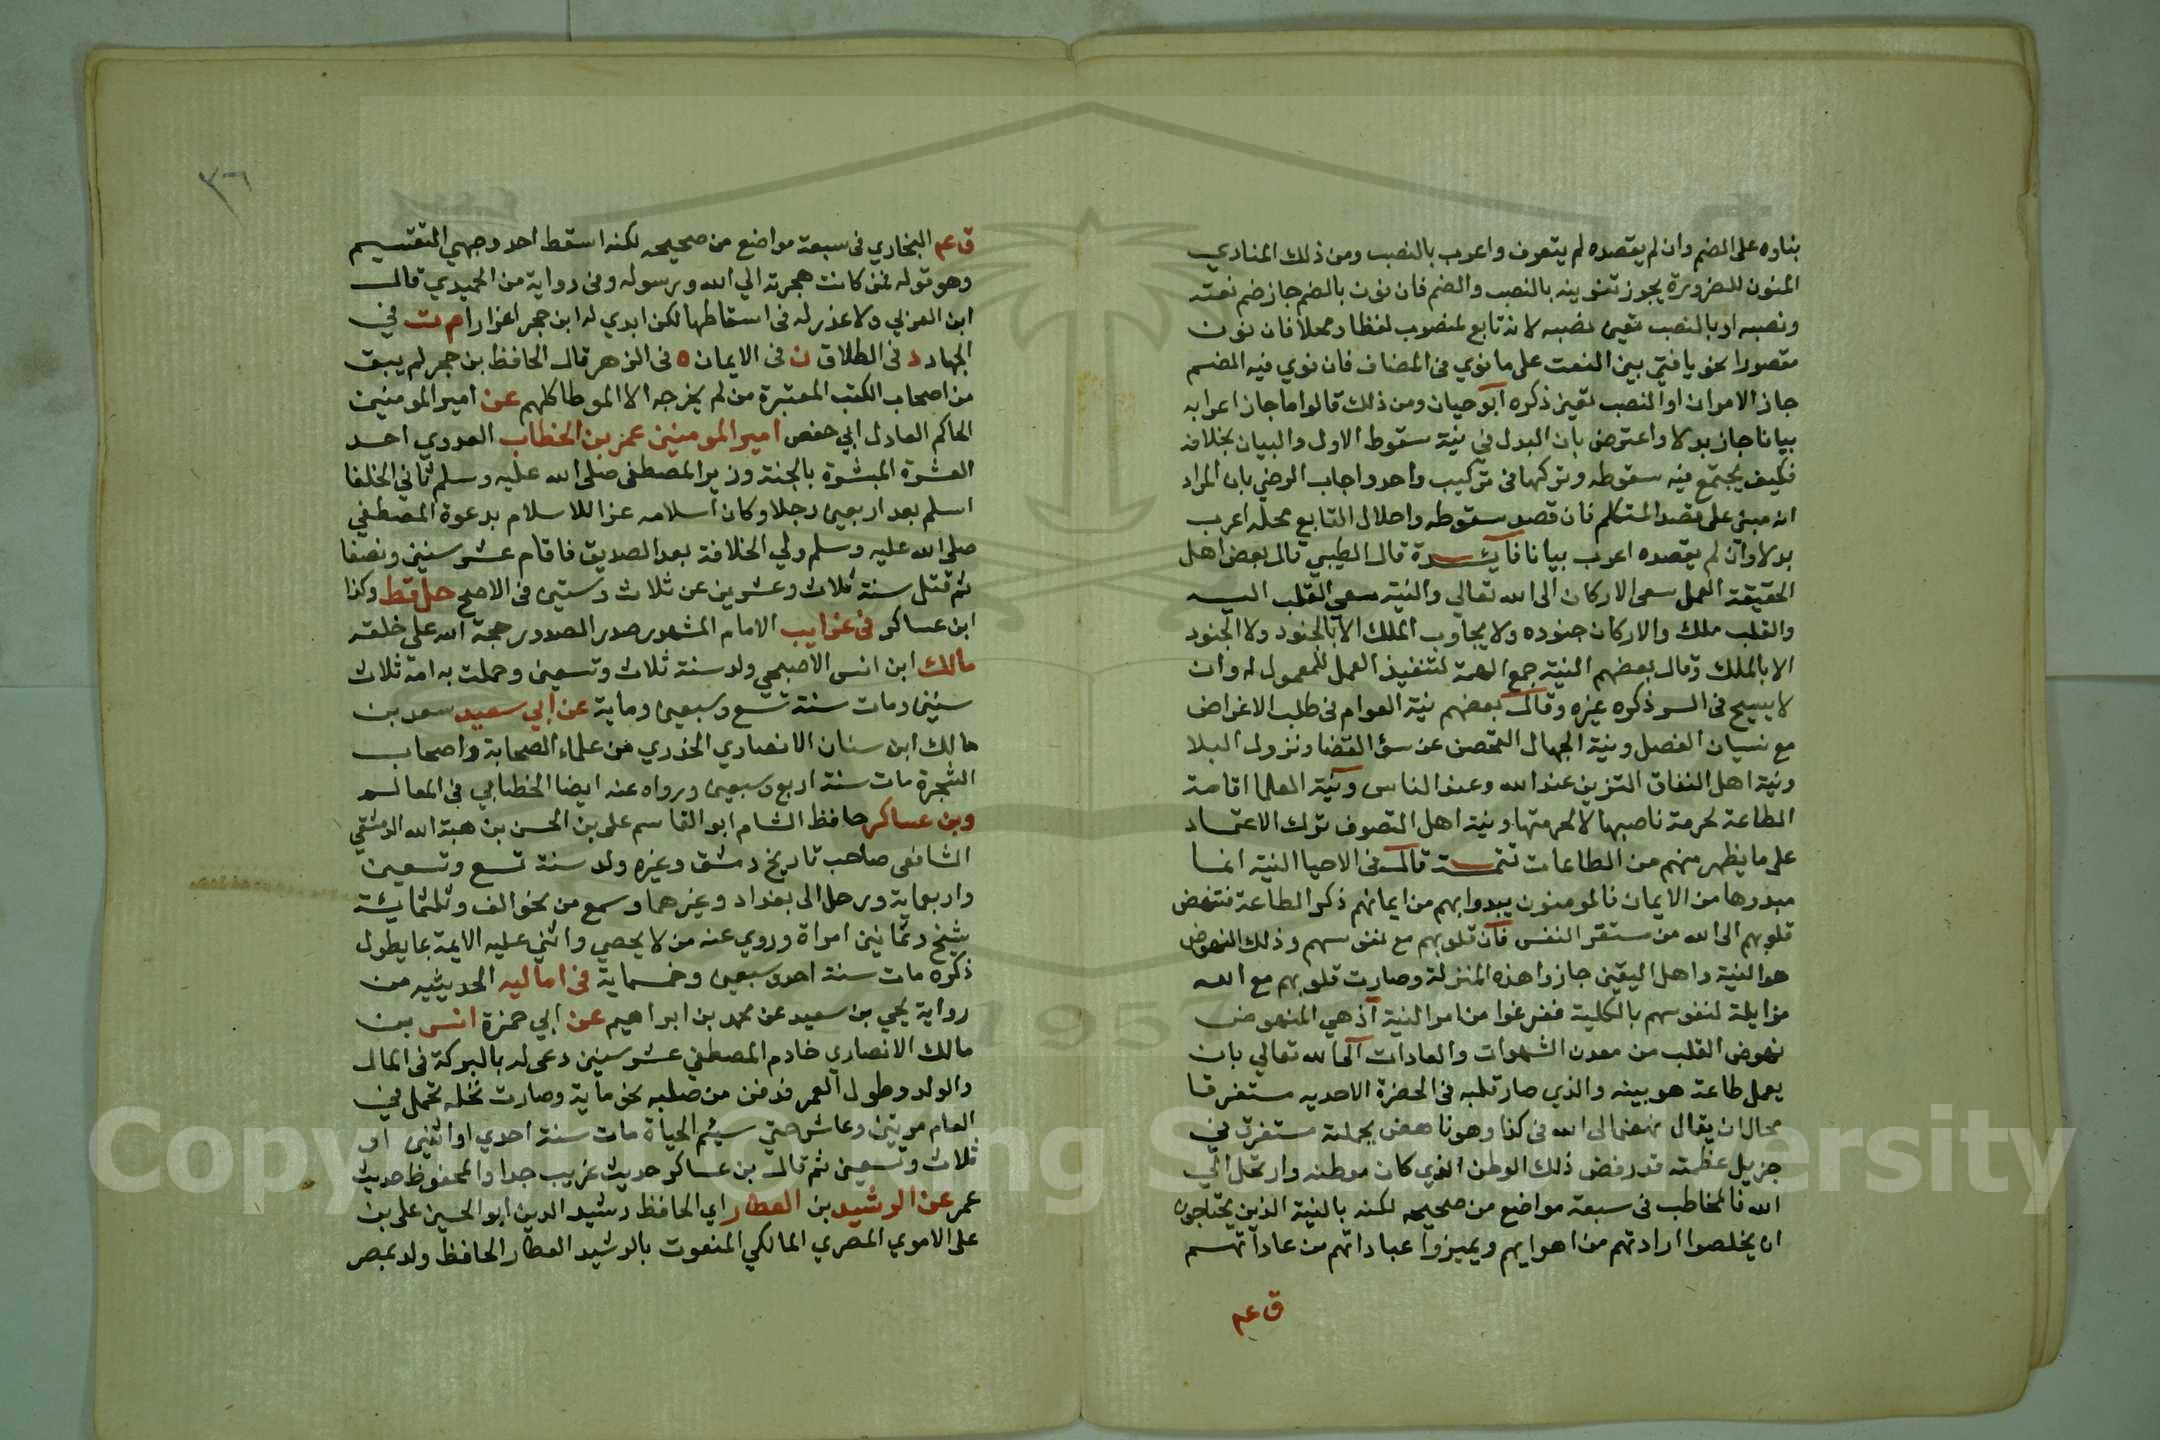 بناوه على الضم وان لم يقصده لم يتعرف واعرب بالنصب ومن ذلك المنادي
المنون للضرورة يجوز تنوينه بالنصب والضم فان نون بالضم جاز ضم نعته
ونصبه او بالنصب تعين نصبه لانه تابع لمنصوب لفظا ومحلا فان نون
مقصورا نحو يا فتي بين النعت على ما نوي في المضاف فان نوي فيه الضم
جاز الامران او النصب تعين ذكره ابو حيان ومن ذلك قالوا ما جاز اعرابه
بيانا جاز بدلا واعترض بان البدل في نية سقوط الاول والبيان بخلافه
فكيف يجتمع نية سقوطه وتركها في تركيب واحد واجاب الرضي بان المراد
انه مبني على قصد المتكلم فان قصد سقوطه واحلال التابع محله اعرب
بدلا وان لم يقصده اعرب بيانا فايدة قال الطيبي قال بعض اهل
الحقيقة العمل سعى الاركان الى الله تعالي والنية سعى القلب اليه
والقلب ملك والاركان جنوده ولا يحارب الملك الا بالجنود ولا الجنود
الا بالملك وقال بعضهم النية جمع الهمة لتنفيذ العمل للمعمول له وان
لا يسيح في السر ذكره غيره وقال بعضهم نية العوام في طلب الاغراض
مع نسيان الفضل ونية الجهال التحصن عن سؤ القضا ونزول البلا
ونية اهل النفاق التزين عند الله وعند الناس ونية العلما اقامة
الطاعة لحرمة ناصبها لا لحرمتها ونية اهل التصوف ترك الاعتماد
على ما يظهر منهم من الطاعات تتمة قال في الاحيا النية انما
مبدوها من الايمان فالمومنون يبدوا بهم من ايمانهم ذكر الطاعة فتنهض
قلوبهم الى الله من مستقر النفس فان قلوبهم مع نفوسهم وذلك النهوض
هو النية واهل اليقين جازوا هذه المنزلة وصارت قلوبهم مع الله
مزايلة لنفوسهم بالكلية ففرغوا من امر النية اذ هي النهوض
نهوض القلب من معدن الشهوات والعادات الى الله تعالي بان
يعمل طاعة هو بينه والذي صار قلبه في الحضرة الاحديه مستغرقا
محال ان يقال نهض الى الله في كذا وهو ناهض بجملته مستغرق في
جزيل عظمته قد رفض ذلك الوطن الذي كان موطنه وارتحل الي
الله فالمخاطب في سبعة مواضع من صحيحه لكنه بالنية الذين يحتاجون
ان يخلصوا ارادتهم من اهوايهم ويميزوا عباداتهم من عاداتهم
ق عم
٣٦
ق عم البخاري في سبعة مواضع من صحيحه لكنه اسقط احد وجهي التقسيم
وهو قوله فمن كانت هجرته الي الله ورسوله وفي رواية من الحميدي قال
ابن العربي ولا عذر له في اسقاطها لكن ابدي له ابن حجر اعذارا م ت في
الجهاد د في الطلاق ن في الايمان ه في الزهد قال الحافظ بن حجر لم يبق
من اصحاب الكتب المعتبرة من لم يخرجه الا الموطا كلهم عن امير المومنين
الحاكم العادل ابي حفص امير المومنين عمر بن الخطاب العدوي احد
العشرة المبشرة بالجنة وزير المصطفى صلى الله عليه وسلم ثاني الخلفا
اسلم بعد اربعين رجلا وكان اسلامه عزا للاسلام بدعوة المصطفي
صلى الله عليه وسلم ولي الخلافة بعد الصديق فاقام عشر سنين ونصفا
ثم قتل سنة ثلاث وعشرين عن ثلاث وستين في الاصح حل قط وكذا
ابن عساكر في غرايب الامام المشهور صدر الصدور حجة الله على خلقه
مالك ابن انس الاصبحي ولد سنة ثلاث وتسعين وحملت به امه ثلاث
سنين ومات سنة تسع وسبعين وماية عن ابي سعيد سعد بن
مالك ابن سنان الانصاري الخدري من علماء الصحابة واصحاب
الشجرة مات سنة اربع وسبعين ورواه عنه ايضا الخطابي في المعالم
وبن عساكر حافظ الشام ابو القاسم على بن الحسن بن هبة الله الدمشقي
الشافعى صاحب تاريخ دمشق وغيره ولد سنة تسع وتسعين
واربعماية ورحل الى بغداد وغيرهما وسمع من نحو الف وثلثمائة
شيخ وثمانين امراة وروي عنه من لا يحصي واثني عليه الايمة بما يطول
ذكره مات سنة احدى وسبعين وخمسماية في اماليه الحديثيه من
رواية يحي بن سعيد عن محمد بن ابراهيم عن ابي حمزة انس بن
مالك الانصاري خادم المصطفي عشر سنين دعى له بالبركة في المال
والولد وطول العمر فدفن من صلبه نحو ماية وصارت نخله تحمل في
العام مرتين وعاش حتي سيم الحياة مات سنة احدي او اثنين او
ثلاث وتسعين ثم قال بن عساكر حديث غريب جدا والمحفوظ حديث
عمر عن الرشيد بن العطار اي الحافظ رشيد الدين ابو الحسين على بن
على الاموي المصري المالكي المنعوت بالرشيد العطار الحافظ ولد بمصر